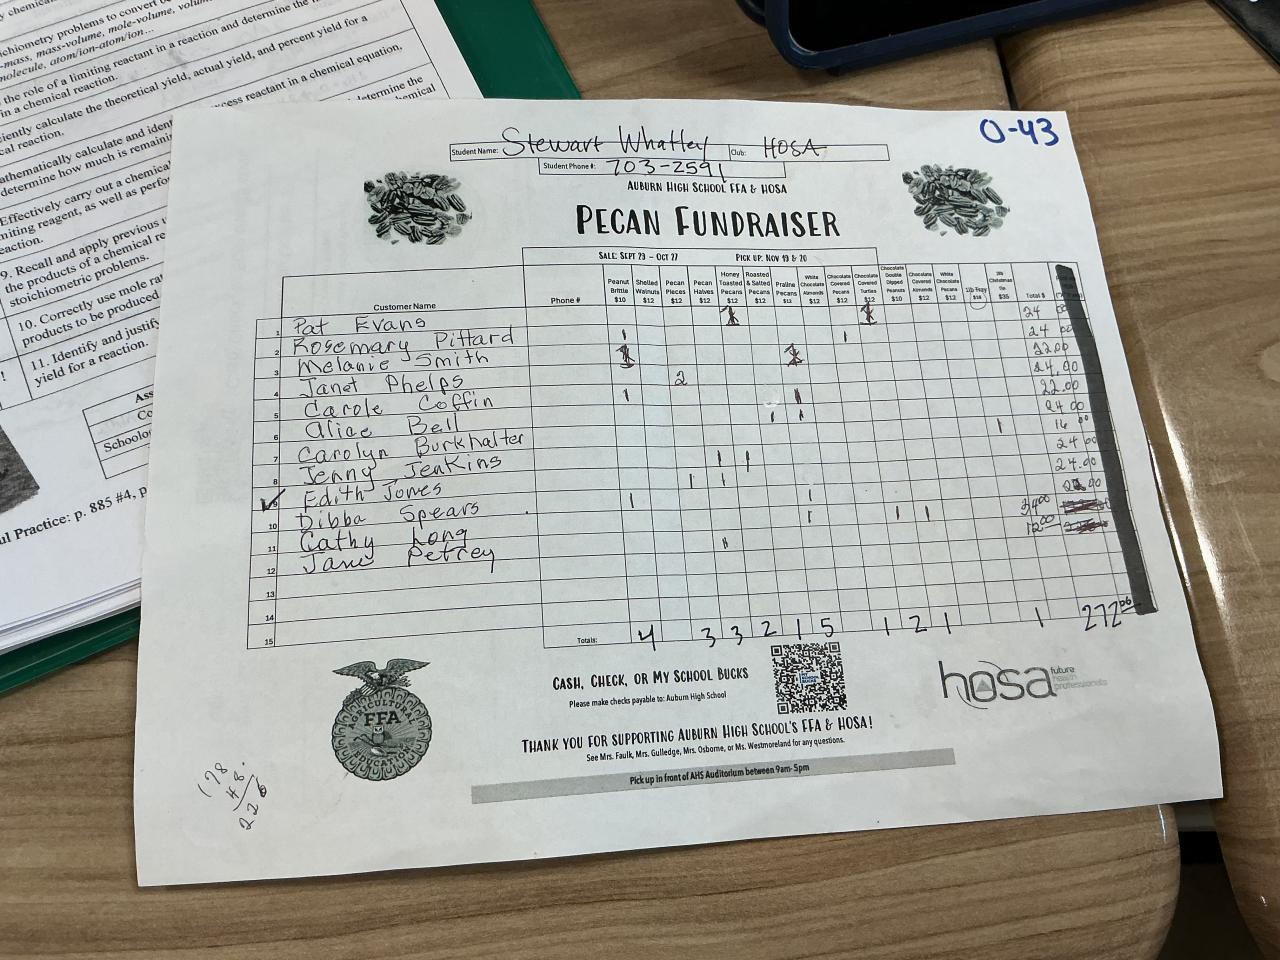 y chemica
ichiometry problems to convert be
-mass, mass-volume, mole-volume, volum
molecule, atom/ion-atom/ion...
the role of a limiting reactant in a reaction and determine the
in a chemical reaction.
iently calculate the theoretical yield, actual yield, and percent yield for a
cal reaction.
athematically calculate and iden
cess reactant in a chemical equation,
determine how much is remaini
etermine the
Effectively carry out a chemica
emical
miting reagent, as well as perfo
eaction.
9. Recall and apply previous
the products of a chemical re
stoichiometric problems.
10. Correctly use mole rat
products to be produced
11. Identify and justify
yield for a reaction.
Ass
Co
Schoolo
ul Practice: p. 885 #4, p
O-43
Student Name: Stewart Whatley Club: HOSA
Student Phone #: 703-2591
AUBURN HIGH SCHOOL FFA & HOSA
PECAN FUNDRAISER
SALE: SEPT 23 - OCT 27 PICK UP: NOV 19 & 20
Customer Name Phone # Peanut Brittle $10 Shelled Walnuts $12 Pecan Pieces $12 Pecan Halves $12 Honey Toasted Pecans $12 Roasted & Salted Pecans $12 Praline Pecans $12 White Chocolate Almonds $12 Chocolate Covered Pecans $12 Chocolate Covered Turtles $12 Chocolate Double Dipped Peanuts $10 Chocolate Covered Almonds $12 White Chocolate Pecans $12 Christmas $35 Total $
1 Pat Evans 1 1 24 00
2 Rosemary Pittard 1 1 24 00
3 Melanie Smith 1 1 22.00
4 Janet Phelps 2 24.00
5 Carole Coffin 1 1 22.00
6 Alice Bell 1 1 24 00
7 Carolyn Burkhalter 1 16 00
8 Jenny Jenkins 1 1 24 00
9 Edith Jones 1 1 24.00
10 Dibba Spears 1 1
11 Cathy Long 1 1 1 34 00
12 Jane Petrey 1 12 00
13
14
15 Totals: 4 3 3 2 1 5 1 2 1 1 272 00
FFA
AGRICULTURAL EDUCATION
CASH, CHECK, OR MY SCHOOL BUCKS
Please make checks payable to: Auburn High School
MY SCHOOL BUCKS
hosa future health professionals
THANK YOU FOR SUPPORTING AUBURN HIGH SCHOOL'S FFA & HOSA!
See Mrs. Faulk, Mrs. Gulledge, Mrs. Osborne, or Ms. Westmoreland for any questions.
Pick up in front of AHS Auditorium between 9am-5pm
178
48
226